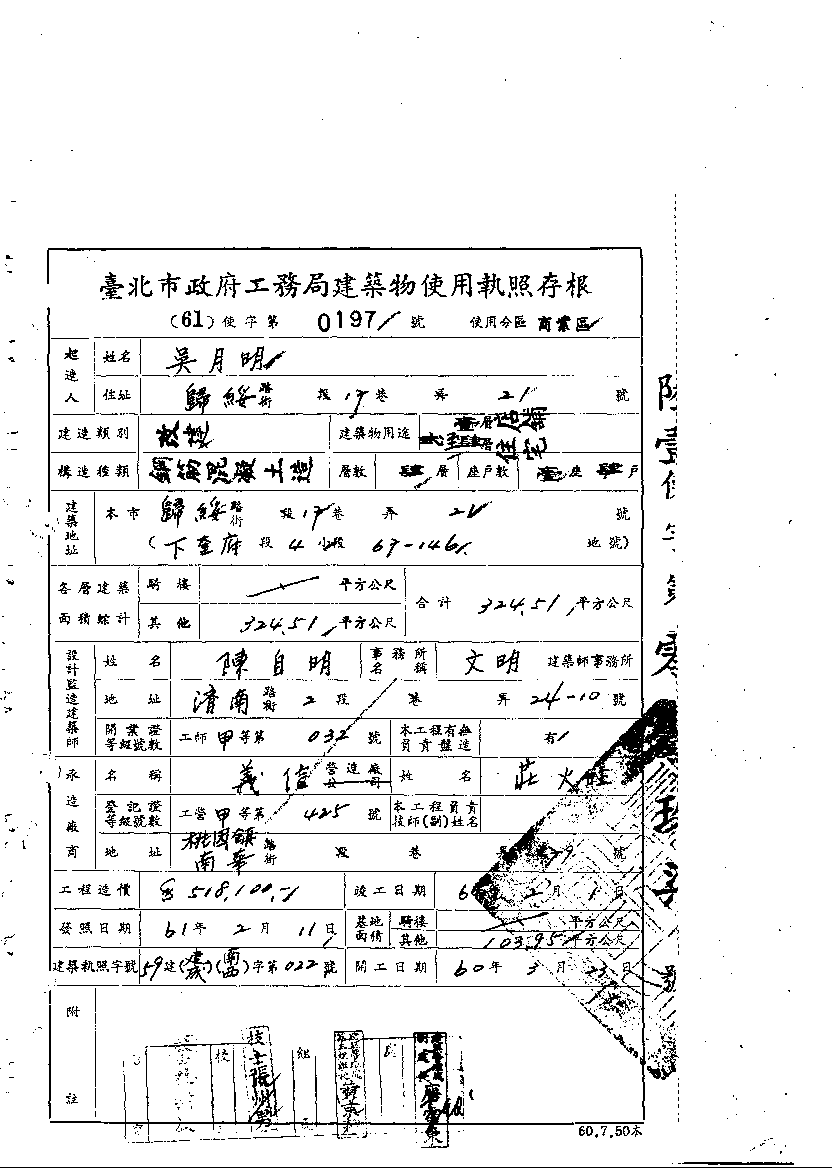 臺北市政府工務局建築物使用執照存根
(61) 使字第 0197 號 使用分區 商業區
起造人 姓名 吳月明
住址 歸綏 路街 段 17 巷 弄 21 號
建造類別 改建 建築物用途 壹層店舖 住宅
構造種類 鋼筋混凝土造 層數 肆 層 座戶數 壹 座 肆 戶
建築地址 本市 歸綏 路街 段 17 巷 弄 21 號
(下奎府 段 4 小段 67-146 地號)
各層建築面積總計 騎樓 平方公尺 合計 324.51 平方公尺
其他 324.51 平方公尺
設計監造建築師 姓名 陳自明 事務所名稱 文明 建築師事務所
地址 濟南 路街 2 段 巷 弄 24-10 號
開業證等級號數 工師 甲 等第 032 號 本工程有無負責監造 有
承造廠商 名稱 義信 營造廠公司 姓名 莊火
登記證等級號數 工營 甲 等第 425 號 本工程負責技師(副)姓名
地址 桃園鎮南華 路街 段 巷 弄 79 號
工程造價 518,100.- 竣工日期 6 年 2 月 1 日
發照日期 61 年 2 月 11 日 基地面積 騎樓 平方公尺
其他 103.95 平方公尺
建築執照字號 59 建 字第 022 號 開工日期 60 年 3 月 23 日
附註
技士張
60.7.50本